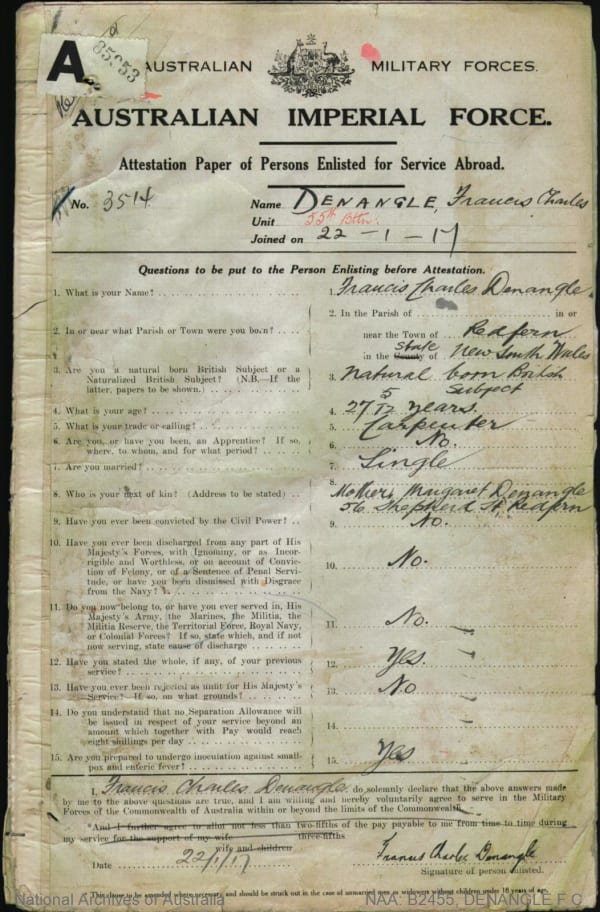 A
85653
AUSTRALIAN MILITARY FORCES.
AUSTRALIAN IMPERIAL FORCE.
Attestation Paper of Persons Enlisted for Service Abroad.
No. 3514 Name DENANGLE, Francis Charles
Unit 55th Bttn.
Joined on 22-1-17
Questions to be put to the Person Enlisting before Attestation.
1. What is your Name? 1. Francis Charles Denangle
2. In or near what Parish or Town were you born? 2. In the Parish of in or
near the Town of Redfern
in the County State of New South Wales
3. Are you a natural born British Subject or a
Naturalized British Subject? (N.B.—If the
latter, papers to be shown.) 3. Natural born British
Subject
4. What is your age? 4. 27 5/12 years.
5. What is your trade or calling? 5. Carpenter
6. Are you, or have you been, an Apprentice? If so,
where, to whom, and for what period? 6. No.
7. Are you married? 7. Single
8. Who is your next of kin? (Address to be stated) 8. Mother, Margaret Denangle
56 Shepherd St, Redfern
9. Have you ever been convicted by the Civil Power? 9. No.
10. Have you ever been discharged from any part of His
Majesty's Forces, with Ignominy, or as Incor-
rigible and Worthless, or on account of Convic-
tion of Felony, or of a Sentence of Penal Servi-
tude, or have you been dismissed with Disgrace
from the Navy? 10. No.
11. Do you now belong to, or have you ever served in, His
Majesty's Army, the Marines, the Militia, the
Militia Reserve, the Territorial Force, Royal Navy,
or Colonial Forces? If so, state which, and if not
now serving, state cause of discharge 11. No.
12. Have you stated the whole, if any, of your previous
service? 12. Yes.
13. Have you ever been rejected as unfit for His Majesty's
Service? If so, on what grounds? 13. No
14. Do you understand that no Separation Allowance will
be issued in respect of your service beyond an
amount which together with Pay would reach
eight shillings per day 14.
15. Are you prepared to undergo inoculation against small-
pox and enteric fever? 15. Yes
I, Francis Charles Denangle do solemnly declare that the above answers made
by me to the above questions are true, and I am willing and hereby voluntarily agree to serve in the Military
Forces of the Commonwealth of Australia within or beyond the limits of the Commonwealth.
*And I further agree to allot not less than two-fifths of the pay payable to me from time to time during
three-fifths
my service for the support of my wife
wife and children
Date 22/1/17 Francis Charles Denangle
Signature of person enlisted.
* This clause to be amended where necessary, and should be struck out in the case of unmarried men or widowers without children under 18 years of age.
National Archives of Australia NAA: B2455, DENANGLE F C